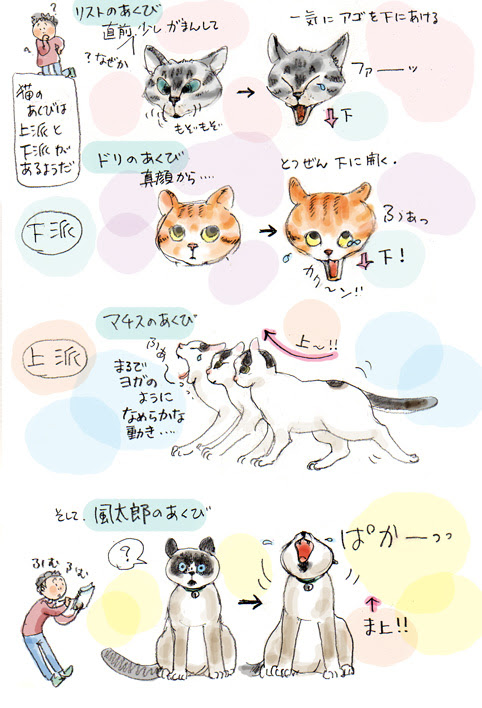 リストのあくび
直前、少しがまんして
?なぜか
もぞもぞ
一気にアゴを下にあける
ファーーッ
下
猫の
あくびは
上派と
下派が
あるようだ
?
下派
ドリのあくび
真顔から・・・・
とつぜん下に開く.
ふぁっ
下!
カク〜ン!!
上派
マチスのあくび
ふぁ
まるで
ヨガの
ように
なめらかな
動き・・・・
上〜!!
そして、風太郎のあくび
?
ふむふむ
ぱかーーっっ
ま上!!